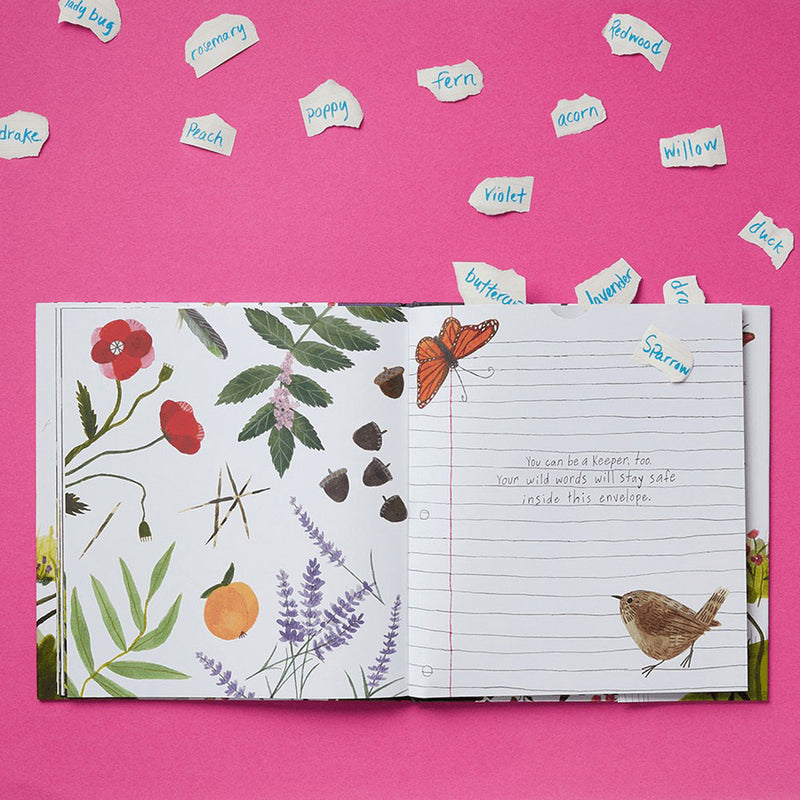 lady bug
rosemary
Redwood
fern
poppy
acorn
drake
Peach
willow
violet
duck
buttercup
lavender
Sparrow
You can be a Keeper, too.
Your wild words will stay safe
inside this envelope.